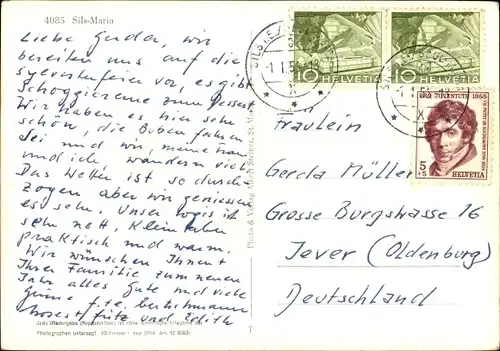 4085 Sils-Maria
Liebe Gerda, wir
bereiten uns auf die
Sylvesterfeier vor, es gibt
Schoggicreme zum Dessert
Wir haben es hier sehr
schön, die Buben fahren
Sei und wir, meine Frau
und ich wandern viel
Das Wetter ist so durch
zogen aber wir geniessen
es sehr. Unser logis ist
sehr nett, klein aber
praktisch und warm.
Wir wünschen Ihnen
Ihrer Familie zum neuen
Jahr alles Gute und viele
Grüsse
Horst, Fritz und Edith
Photo & Verlag
HELVETIA
10
HELVETIA
10
PRO JUVENTUTE 1955
5
+5
HELVETIA
Fräulein
Gerda Müller
Grosse Burgstrasse 16
Jever (Oldenburg)
Deutschland